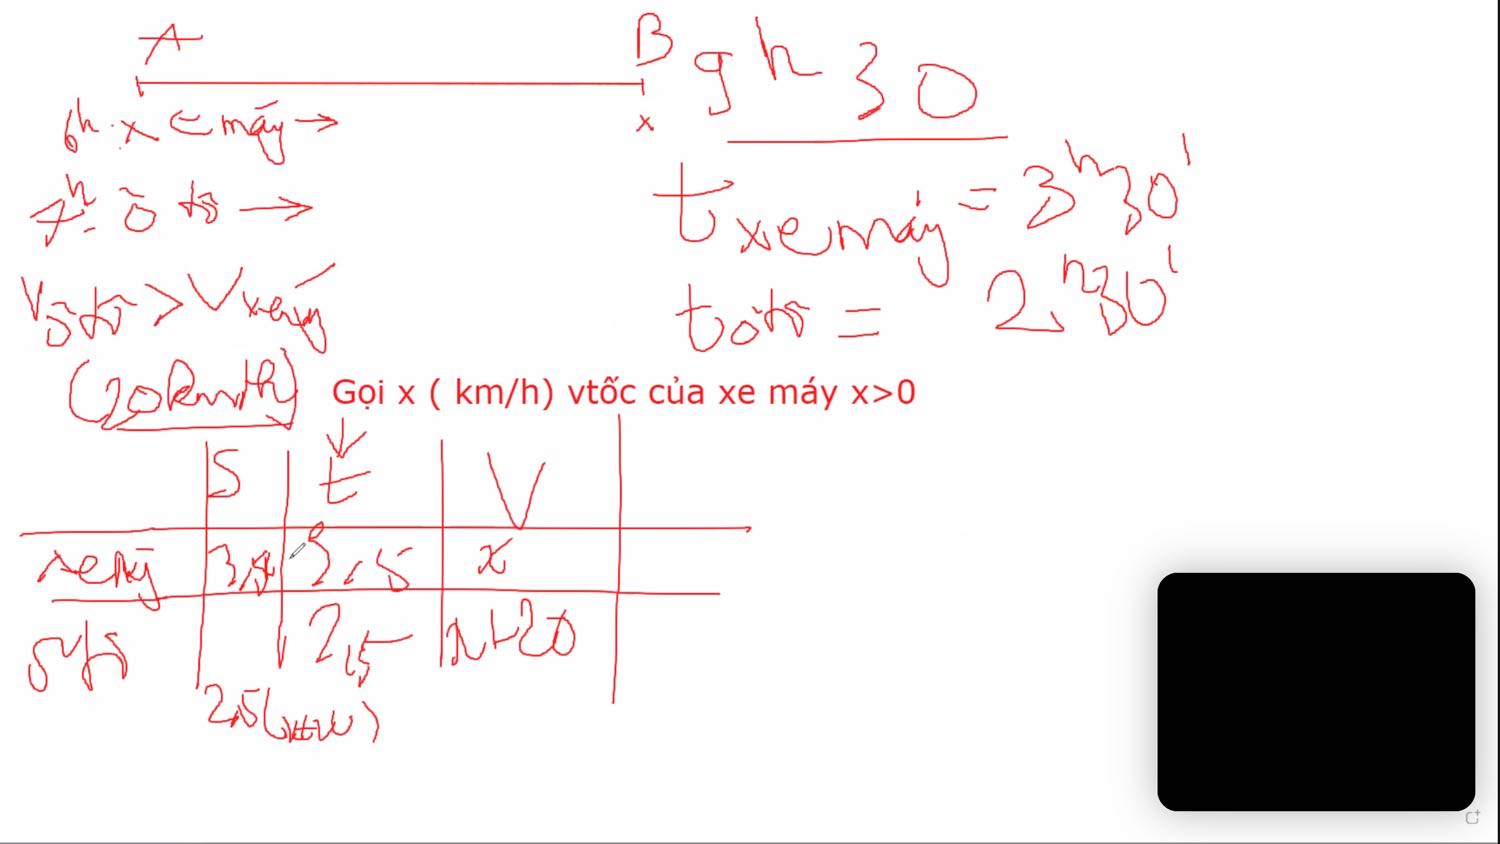 A B 9h 30
6h x e máy →
x
7h ô tô →
t xe máy = 3h30'
Vô tô > V xe máy
t ô tô = 2h30'
(20km/h)
Gọi x ( km/h) vtốc của xe máy x>0
S t V
xe máy 3,5x 3,5 x
ô tô 2,5 x+20
2,5(x+20)